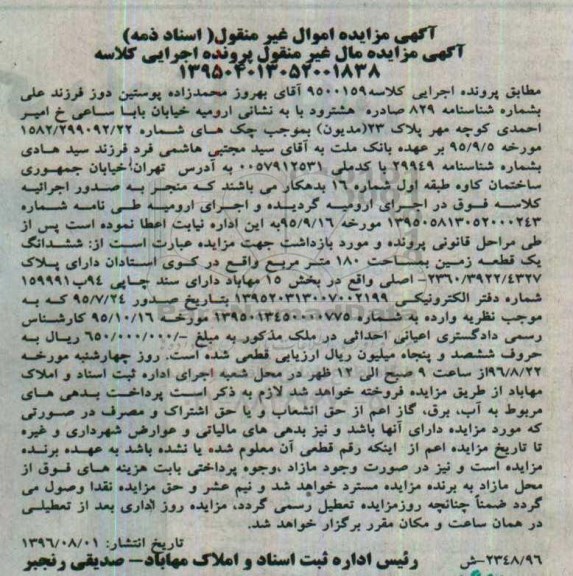 آگهی مزایده اموال غیر منقول( اسناد ذمه)
آگهی مزایده مال غیر منقول پرونده اجرایی کلاسه
۱۳۹۵۰۴۰۱۳۰۵۲۰۰۱۸۳۸
مطابق پرونده اجرایی کلاسه۹۵۰۰۱۵۹ آقای بهروز محمدزاده پوستین دوز فرزند علی
بشماره شناسنامه ۸۲۹ صادره هشترود با به نشانی ارومیه خیابان بابا ساعی خ امیر
احمدی کوچه مهر پلاک ۲۳(مدیون) بموجب چک های شماره ۱۵۸۲/۲۹۹۰۹۲/۲۲
مورخه ۹۵/۹/۵ بر عهده بانک ملت به آقای سید مجتبی هاشمی فرد فرزند سید هادی
بشماره شناسنامه ۲۹۹۴۹ با کدملی ۰۰۵۷۹۱۲۵۳۱ به آدرس تهران خیابان جمهوری
ساختمان کاوه طبقه اول شماره ۱۶ بدهکار می باشند که منجر به صدور اجرائیه
کلاسه فوق در اجرای ارومیه گردیده و اجرای ارومیه طی نامه شماره
۱۳۹۵۰۵۸۱۳۰۵۲۰۰۰۲۴۳ مورخه ۹۵/۹/۱۶به این اداره نیابت اعطا نموده است پس از
طی مراحل قانونی پرونده و مورد بازداشت جهت مزایده عبارت است از: ششدانگ
یک قطعه زمین بمساحت ۱۸۰ متر مربع واقع در کوی استادان دارای پلاک
۲۳۶۰/۳۹۲۲/۴۳۲۷- اصلی واقع در بخش ۱۵ مهاباد دارای سند چاپی ۹۴ب۱۵۹۹۹۱
شماره دفتر الکترونیکی ۱۳۹۵۲۰۳۱۳۰۰۷۰۰۲۱۹۹ بتاریخ صدور ۹۵/۷/۲۴ که به
موجب نظریه وارده به شماره ۱۳۹۵۰۱۳۴۵۰۰۱۰۷۷۵ مورخه ۹۵/۱۰/۱۶ کارشناس
رسمی دادگستری اعیانی احداثی در ملک مذکور به مبلغ -/۶۵۰/۰۰۰/۰۰۰ ریال به
حروف ششصد و پنجاه میلیون ریال ارزیابی قطعی شده است. روز چهارشنبه مورخه
۹۶/۸/۲۲از ساعت ۹ صبح الی ۱۲ ظهر در محل شعبه اجرای اداره ثبت اسناد و املاک
مهاباد از طریق مزایده فروخته خواهد شد لازم به ذکر است پرداخت بدهی های
مربوط به آب، برق، گاز اعم از حق انشعاب و یا حق اشتراک و مصرف در صورتی
که مورد مزایده دارای آنها باشد و نیز بدهی های مالیاتی و عوارض شهرداری و غیره
تا تاریخ مزایده اعم از اینکه رقم قطعی آن معلوم شده یا نشده باشد به عهده برنده
مزایده است و نیز در صورت وجود مازاد ،وجوه پرداختی بابت هزینه های فوق از
محل مازاد به برنده مزایده مسترد خواهد شد و نیم عشر و حق مزایده نقدا وصول می
گردد ضمناً چنانچه روزمزایده تعطیل رسمی گردد، مزایده روز اداری بعد از تعطیلی
در همان ساعت و مکان مقرر برگزار خواهد شد.
تاریخ انتشار: ۱۳۹۶/۰۸/۰۱
۲۳۴۸/۹۶-ش رئیس اداره ثبت اسناد و املاک مهاباد- صدیقی رنجبر